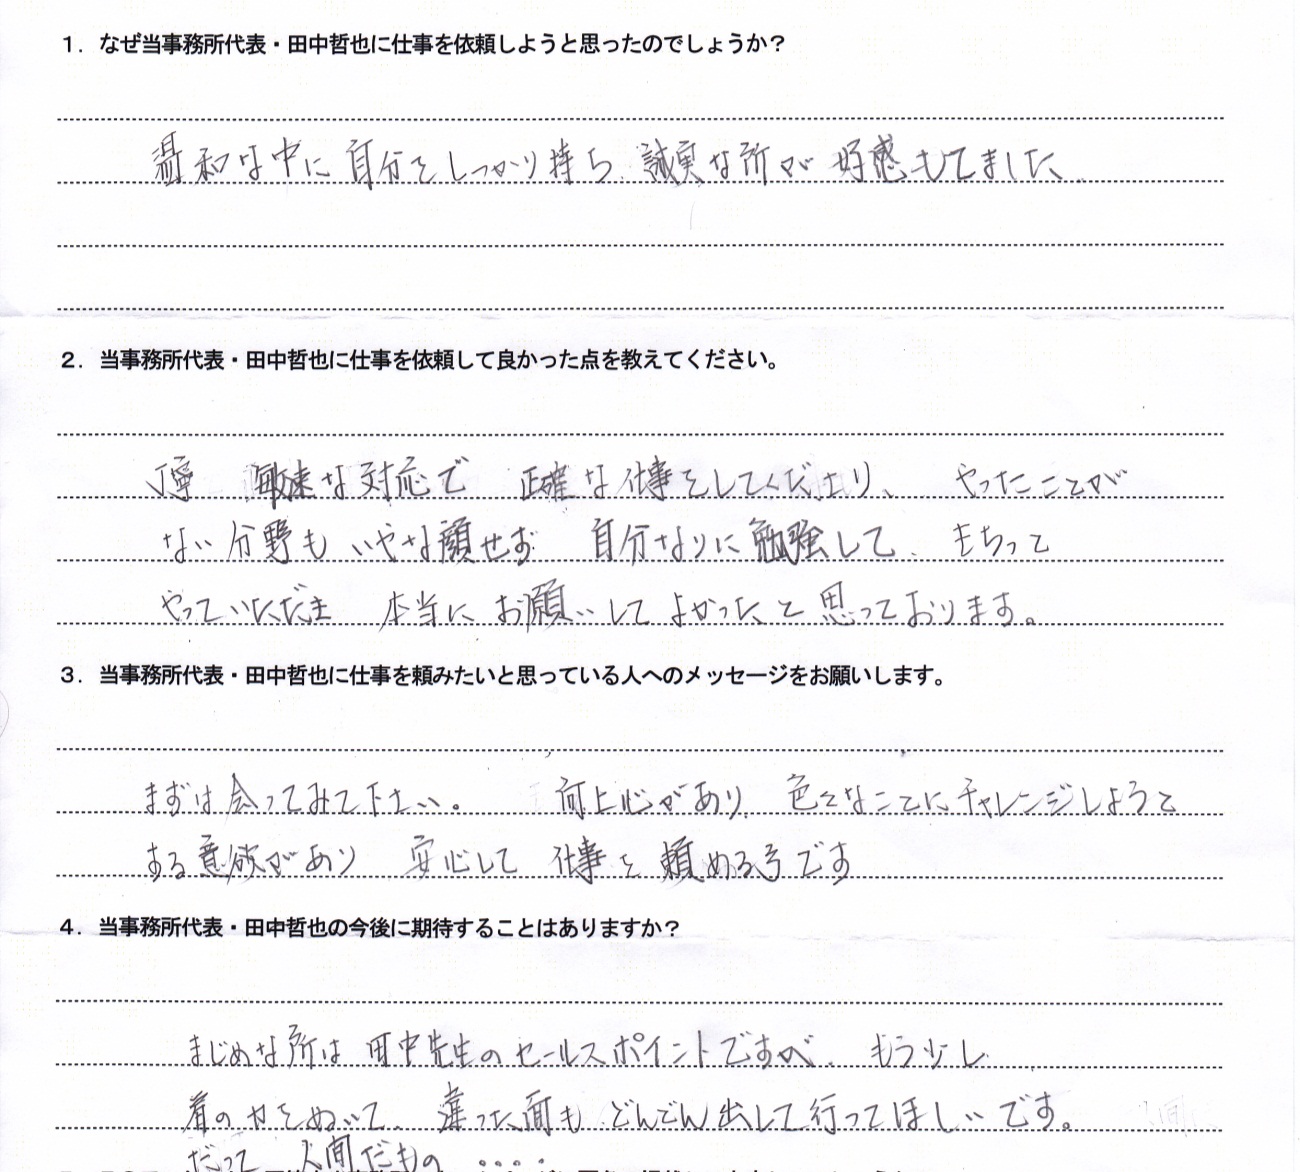 1．なぜ当事務所代表・田中哲也に仕事を依頼しようと思ったのでしょうか？
温和な中に 自分をしっかり持ち、誠実な所が 好感もてました。
2．当事務所代表・田中哲也に仕事を依頼して良かった点を教えてください。
丁寧 敏速な対応で 正確な仕事をしてくださり、 やったことが
ない分野も いやな顔せず 自分なりに勉強して、きちっと
やっていただき 本当にお願いしてよかったと思っております。
3．当事務所代表・田中哲也に仕事を頼みたいと思っている人へのメッセージをお願いします。
まずは会ってみて下さい。 向上心があり、色々なことにチャレンジしようと
する意欲があり 安心して 仕事を頼める方です
4．当事務所代表・田中哲也の今後に期待することはありますか？
まじめな所は 田中先生のセールスポイントですが、もう少し
肩の力をぬいて、違った面も どんどん出して行ってほしいです。
だって 人間だもの ‥‥